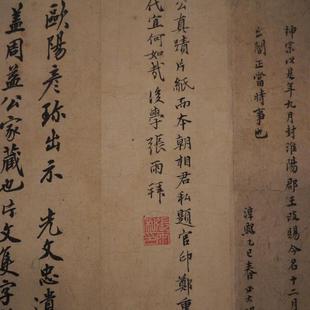 神宗以是年九月封淮陽郡王改賜今名十二月
出閤正當時事也
淳熙乙巳春
公真蹟片紙而本朝相君私題官印鄭重
代宜何如哉後學張雨拜
歐陽彥珍出示
光文忠遺
蓋周益公家藏也片文隻字